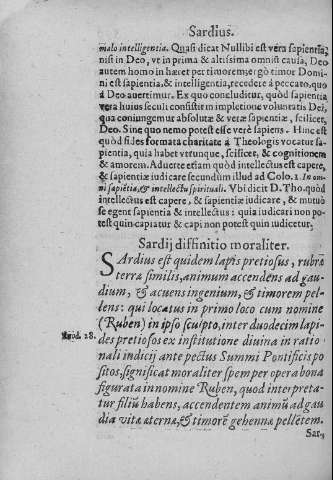 Sardius.
malo intelligentia. Quasi dicat Nullibi est vera sapientia,
nisi in Deo, ve in prima & altissima omnium causa, Deo
autem homo in hæret per timorem; ergò timor Domi-
ni est sapientia, & intelligentia, recedere à peccato, quo
à Deo auertimur. Ex quo concluditur, quòd sapientia
vera huius seculi consistit in impletione voluntatis Dei,
qua coniungemur absolutæ & veræ sapientiæ, scilicet,
Deo. Sine quo nemo potest esse verè sapiens. Hinc est
quòd fides formata charitate à Theologis vocatur sa-
pientia, quia habet vtrunque, scilicet, & cognitionem
& amorem. Aduerte etiam quòd intellectus est capere,
& sapientiæ iudicare secundùm illud ad Colo. 1. In om-
ni sapiẽtia, & intellectu spirituali. Vbi dicit D. Tho. quòd
intellectus est capere, & sapientiæ iudicare, & mutuò
se egent sapientia & intellectus: quia iudicari non po-
test quin capiatur & capi non potest quin iudicetur,
Sardij diffinitio moraliter.
SArdius est quidem lapis pretiosus, rubræ
terræ similis, animum accendens ad gau-
dium, & acuens ingenium, & timorem pel-
lens: qui locatus in primo loco cum nomine
Exod. 28. (Ruben) in ipso sculpto, inter duodecim lapi-
des pretiosos ex institutione diuina in ratio
nali indicij ante pectus Summi Pontificis po
sitos, significat moraliter spem per opera bona
figurata in nomine Ruben, quod interpreta-
tur filiũ habens, accendentem animũ ad gau
dia vitæ æternæ, & timorẽ gehennæ pellẽtem.
Sar-